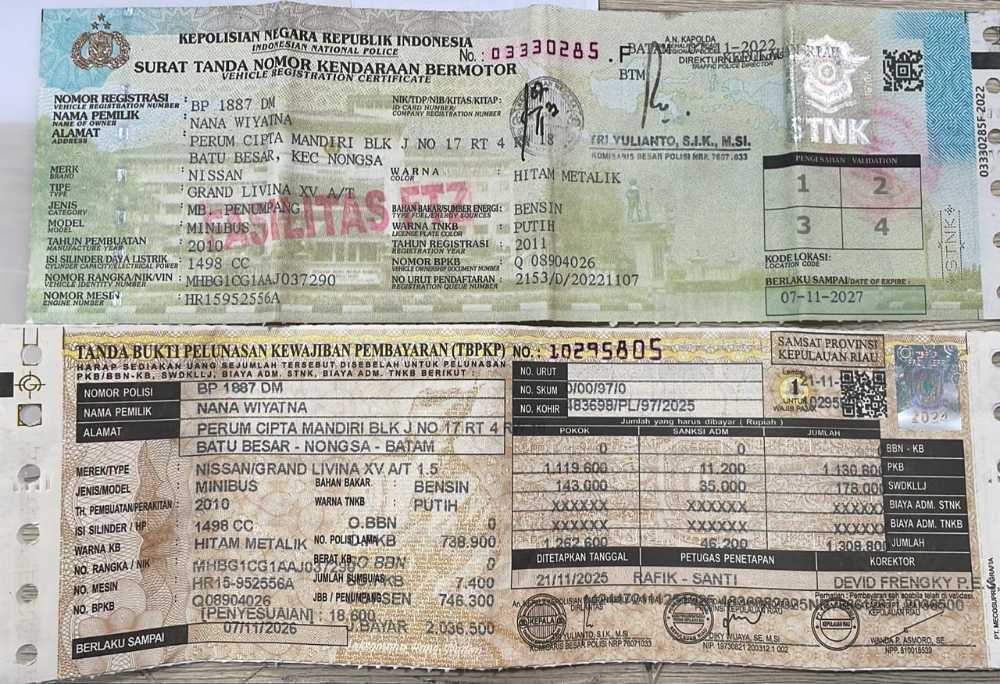 KEPOLISIAN NEGARA REPUBLIK INDONESIA
INDONESIAN NATIONAL POLICE
No. : 03330285 .F
SURAT TANDA NOMOR KENDARAAN BERMOTOR
VEHICLE REGISTRATION CERTIFICATE
BATAM 07-11-2022
A.N. KAPOLDA
DIREKTUR
TRAFFIC POLICE DIRECTOR
BTM
NOMOR REGISTRASI : BP 1887 DM
VEHICLE REGISTRATION NUMBER
NIK/TDP/NIB/KITAS/KITAP :
ID CARD NUMBER/
COMPANY REGISTRATION NUMBER
NAMA PEMILIK : NANA WIYATNA
NAME OF OWNER
ALAMAT : PERUM CIPTA MANDIRI BLK J NO 17 RT 4 RW 18
ADDRESS
BATU BESAR, KEC NONGSA
TRI YULIANTO, S.I.K., M.SI.
KOMISARIS BESAR POLISI NRP.
STNK
MERK : NISSAN
BRAND
WARNA : HITAM METALIK
COLOR
TIPE : GRAND LIVINA XV A/T
TYPE
JENIS : MB. PENUMPANG
CATEGORY
BAHAN BAKAR/SUMBER ENERGI : BENSIN
TYPE FUEL/ENERGY SOURCES
MODEL : MINIBUS
MODEL
WARNA TNKB : PUTIH
LICENSE PLATE COLOR
TAHUN PEMBUATAN : 2010
MANUFACTURE YEAR
TAHUN REGISTRASI : 2011
REGISTRATION YEAR
ISI SILINDER/DAYA LISTRIK : 1498 CC
CYLINDER CAPACITY/ELECTRICAL POWER
NOMOR BPKB : Q 08904026
VEHICLE OWNERSHIP DOCUMENT NUMBER
NOMOR RANGKA/NIK/VIN : MHBG1CG1AAJ037290
VEHICLE IDENTITY NUMBER
NO URUT PENDAFTARAN : 2153/D/20221107
REGISTRATION QUEUE NUMBER
NOMOR MESIN : HR15952556A
ENGINE NUMBER
FASILITAS FTZ
PENGESAHAN VALIDATION
1 2
3 4
KODE LOKASI:
LOCATION CODE
BERLAKU SAMPAI/DATE OF EXPIRE :
07-11-2027
03330285F-2022
STNK
TANDA BUKTI PELUNASAN KEWAJIBAN PEMBAYARAN (TBPKP)
NO.: 10295805
HARAP SEDIAKAN UANG SEJUMLAH TERSEBUT DISEBELAH UNTUK PELUNASAN
PKB/BBN-KB, SWDKLLJ, BIAYA ADM. STNK, BIAYA ADM. TNKB BERIKUT :
SAMSAT PROVINSI
KEPULAUAN RIAU
1
UNTUK
WAJIB PAJAK
21-11-
2024
NOMOR POLISI BP 1887 DM
NAMA PEMILIK NANA WIYATNA
ALAMAT PERUM CIPTA MANDIRI BLK J NO 17 RT 4 R
BATU BESAR - NONGSA - BATAM
NO. URUT
NO. SKUM /00/97/0
NO. KOHIR 83698/PL/97/2025
Jumlah yang harus dibayar ( Rupiah )
POKOK SANKSI ADM JUMLAH
0 0 0 BBN - KB
1,119.600 11,200 1,130.800 PKB
143.000 35.000 178.000 SWDKLLJ
XXXXXX XXXXXX XXXXXX BIAYA ADM. STNK
XXXXXX XXXXXX XXXXXX BIAYA ADM. TNKB
1,262,600 46,200 1,308,800 JUMLAH
MEREK/TYPE : NISSAN/GRAND LIVINA XV A/T 1.5
JENIS/MODEL : MINIBUS
BAHAN BAKAR : BENSIN
TH. PEMBUATAN/PERAKITAN : 2010
WARNA TNKB : PUTIH
ISI SILINDER / HP : 1498 CC
O.BBN 0
WARNA KB : HITAM METALIK
NO. POLISI LAMA 738,900
NO. RANGKA / NIK : MHBG1CG1AAJ037290
BERAT KB
BBN 0
NO. MESIN : HR15-952556A
JUMLAH SUMBU 7.400
NO. BPKB : Q08904026
JBB / PENUMPANG 746,300
[PENYESUAIAN : 18,600
BERLAKU SAMPAI 07/11/2026
BAYAR 2,036,500
DITETAPKAN TANGGAL PETUGAS PENETAPAN KOREKTOR
21/11/2025 RAFIK - SANTI DEVID FRENGKY P.E
Perhatian : Pembayaran sah apabila telah di validasi
DIRLANTAS
YULIANTO, S.I.K, M.SI
KOMISARIS BESAR POLISI NRP 76071033
NIP. 19730821 200312.1 002
WANDA P. ASMORO, SE.
NPP. 810018539